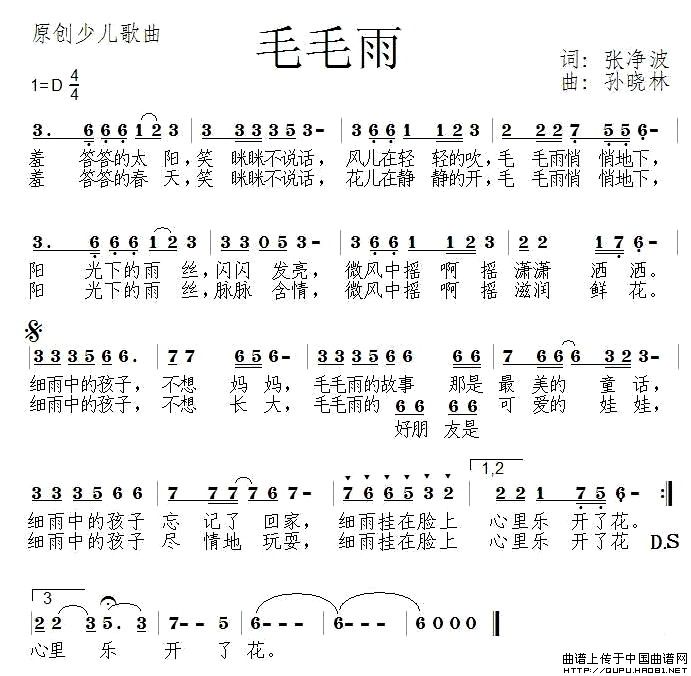 原创少儿歌曲
毛毛雨
词: 张净波
1=D 4/4
曲: 孙晓林
3. 6 6 6 1 2 3 | 3 3 3 3 5 3 - | 3 6 6 1 1 2 3 | 2 2 2 7 5 5 6 - |
羞 答答的太 阳,笑 眯眯不说话, 风儿在轻 轻的吹,毛 毛雨悄 悄地下,
羞 答答的春 天,笑 眯眯不说话, 花儿在静 静的开,毛 毛雨悄 悄地下,
3. 6 6 6 1 2 3 | 3 3 0 5 3 - | 3 6 6 1 3 2 3 | 2 2 1 7 6 - |
阳 光下的雨 丝,闪闪 发亮, 微风中摇 啊 摇 潇潇 洒洒。
阳 光下的雨 丝,脉脉 含情, 微风中摇 啊 摇 滋润 鲜花。
3 3 3 5 6 6. | 7 7 6 6 - | 3 3 3 5 6 6 6 | 7 6 6 3 2 3 - |
细雨中的孩子, 不想 妈妈, 毛毛雨的故事 那是 最 美的 童 话,
细雨中的孩子, 不想 长大, 毛毛雨的 6 6 6 6 可 爱的 娃娃,
好朋 友是
1,2
3 3 3 5 6 6 | 7 7 7 7 6 7 - | 7 6 6 5 3 2 | 2 2 1 7 5 6 - :|
细雨中的孩子 忘 记了 回家, 细雨挂在脸上 心里乐 开了花。
细雨中的孩子 尽 情地 玩耍, 细雨挂在脸上 心里乐 开了花。 D.S
3
2 2 3 5. | 7 - - 5 | 6 - - - | 6 - - - | 6 0 0 0 ‖
心里 乐 开 了 花。
曲谱上传于中国曲谱网
HTTP://WWW.HAOB1.NET